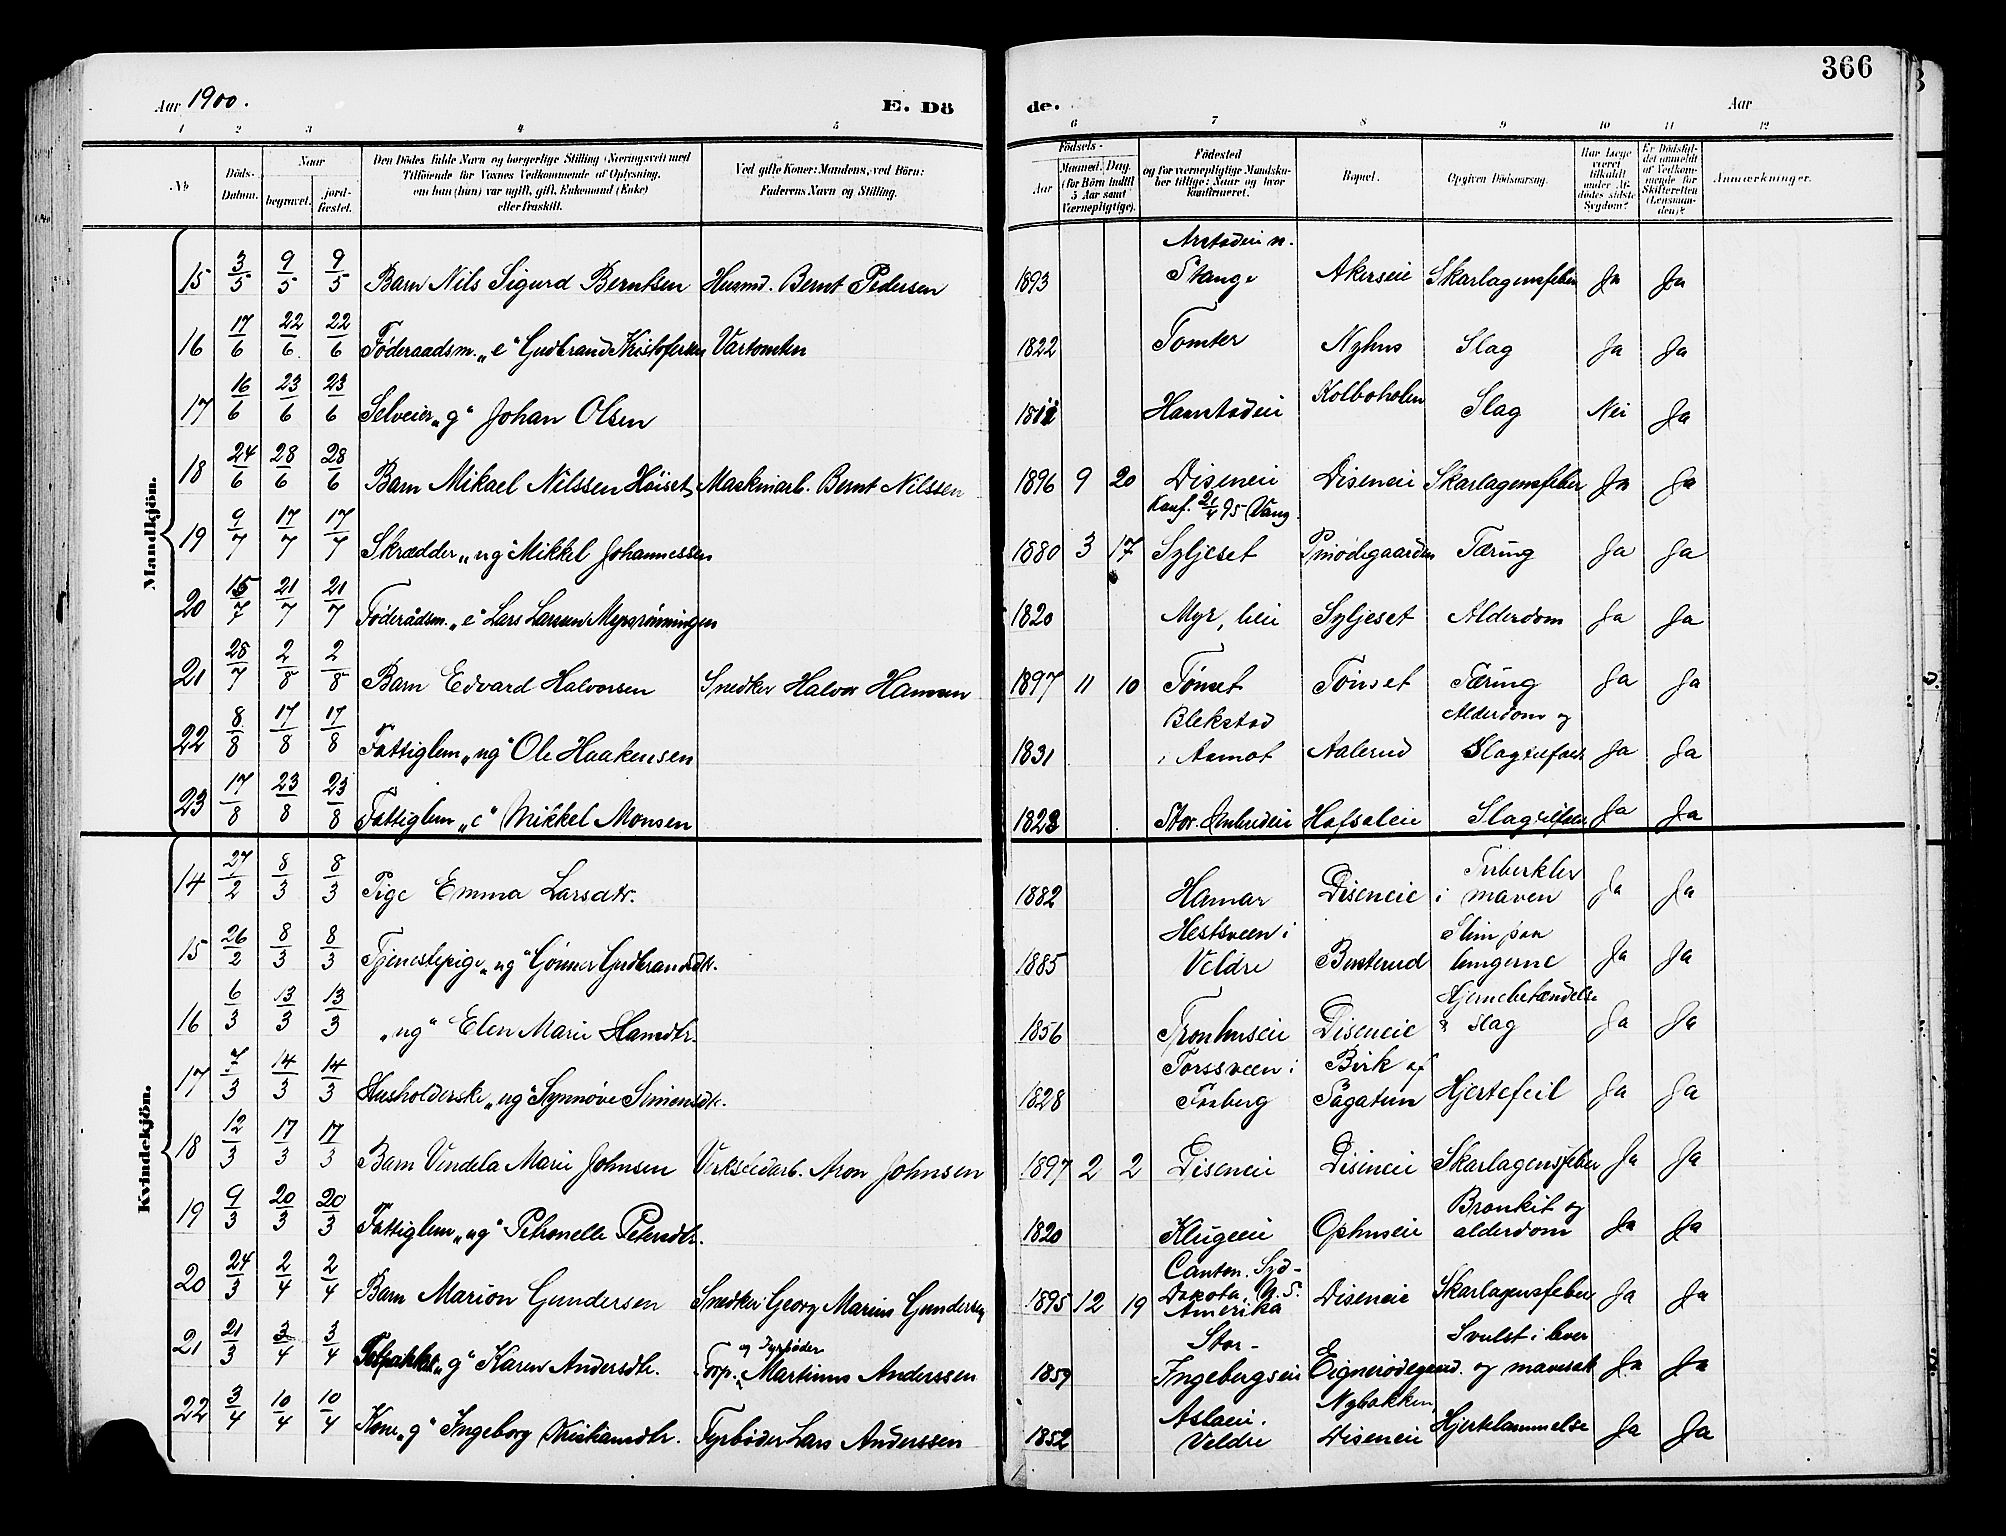 366
Aar 1900. E. Dö de. Aar
1 2 3 4 5 6 7 8 9 10 11 12
No. Döds-Datum. Naar begravet. jord-fæstet. Den Dödes fulde Navn og borgerlige Stilling (Næringsvei) med Tilföiende for Voxnes Vedkommende af Oplysning, om han (hun) var ugift, gift, Enkemand (Enke) eller fraskilt. Ved gifte Koner: Mandens, ved Börn: Faderens Navn og Stilling. Födsels- Aar Maaned. Dag. (for Börn indtil 5 Aar samt Værnepligtige). Födested og for værnepligtige Mandskaber tillige: Naar og hvor konfirmeret. Bopæl. Opgiven Dödsaarsag. Har Læge været tilkaldt under Afdödes sidste Sygdom? Er Dödsfaldet anmeldt af Vedkommende for Skifteretten (Lensmanden)? Anmærkninger.
Mandkjön.
15 3/5 9/5 9/5 Barn Nils Sigurd Berntsen Husmd. Bernt Pedersen 1893 Stange Akerseie Skarlagensfeber Ja Ja
16 17/6 22/6 22/6 Föderaadsm. „e“ Gudbrand Kristofersen Vartomten 1822 Tomter Nyhus Slag Ja Ja
17 16/6 23/6 23/6 Selveier „g“ Johan Olsen Kolboholen Slag Nei Ja
18 24/6 28/6 28/6 Barn Mikael Nilssen Höiset Maskinarb. Bernt Nilssen 1896 9 20 Diseneie Diseneie Skarlagensfeber Ja Ja
Konf. 21/4 95 Vang
19 9/7 17/7 17/7 Skrædder „ug“ Mikkel Johannessen 1880 3 17 Syljeset Tæring Ja Ja
20 15/7 21/7 21/7 Föderådsm. „e“ Lars Larsen Myrsrönningen 1820 Myr, Syljeset Alderdom Ja Ja
21 28/7 2/8 2/8 Barn Edvard Halvorsen Snedker Halvor Hansen 1897 11 10 Tönset Tönset Tæring Ja Ja
22 8/8 17/8 17/8 Fattiglem „ug“ Ole Haakensen 1831 Blekstad i Aamot Aalerud Alderdom og Slagtilfæl Ja Ja
23 17/8 23/8 23/8 Fattiglem „e“ Mikkel Monsen Hafsaleie Slagtilfæl Ja Ja
Kvindekjön.
14 27/2 8/3 8/3 Pige Emma Larsdtr. 1882 Hamar Diseneie Tuberkler i maven Ja Ja
15 26/2 8/3 8/3 Tjenestepige „ug“ Gudbrandsdtr. 1885 Hestsveen i Veldre Busterud Slim paa lungerne Ja Ja
16 6/3 13/3 13/3 „ug“ Elen Marie Hansdtr. 1856 Tronhuseie Diseneie Hjernebetændelse & Slag Ja Ja
17 7/3 14/3 14/3 Husholderske „ug“ Synnöve Simensdtr. 1828 Torssveen i Fåberg Birk af Pagatun Hjertefeil Ja Ja
18 12/3 17/3 17/3 Barn Vendela Marie Johnsen Verkstedarb. Aron Johnsen 1897 2 2 Diseneie Diseneie Skarlagensfeber Ja Ja
19 9/3 20/3 20/3 Fattiglem „ug“ Petronelle Petersdtr. 1820 Klugeeie Ophuseie Bronkit og alderdom Ja Ja
20 24/3 2/4 2/4 Barn Marion Gundersen Snedker Georg Marius Gundersen 1895 12 19 Canton. Syd-Dakota, N. S. Amerika Diseneie Skarlagensfeber Ja Ja
21 21/3 3/4 3/4 „g“ Karen Andersdtr. Torp. og Fyrböder Martinus Anderssen 1859 Stor-Ingebergseie Svulst i lever og mavesæk Ja Ja
22 3/4 10/4 10/4 Kone „g“ Ingeborg Kristiansdtr. Fyrböder Lars Anderssen 1852 Aslaeie. Veldre Nybakken, Diseneie Hjertelammelse Ja Ja